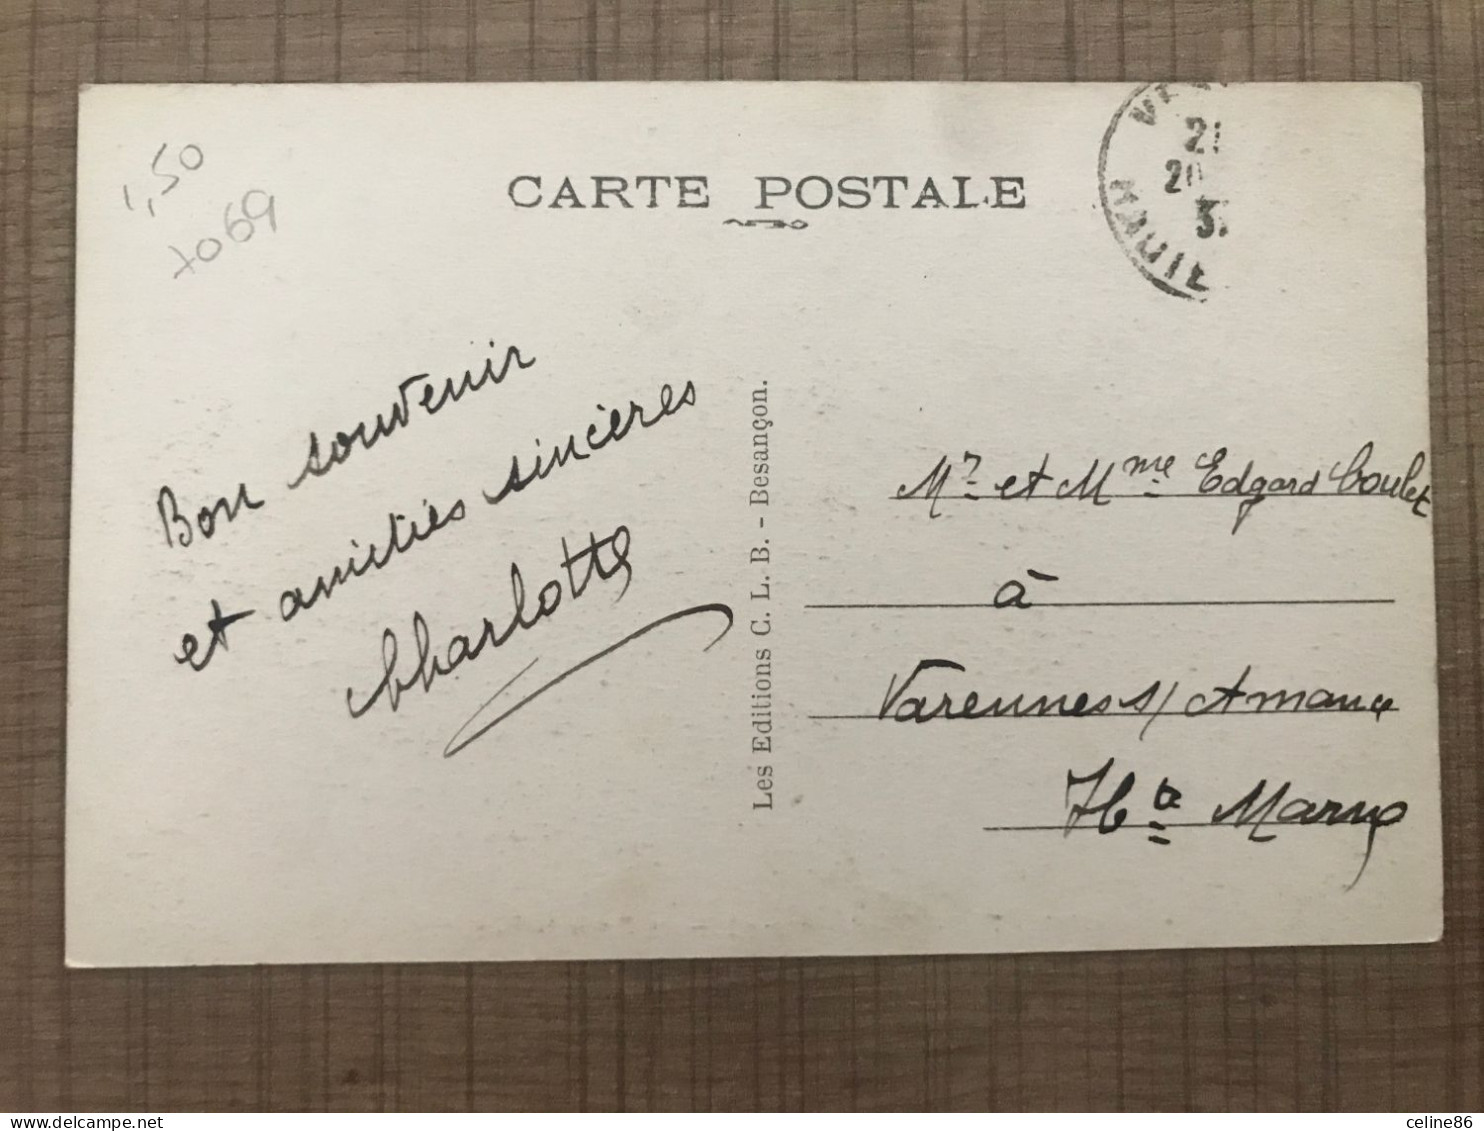 1,50
7069
CARTE POSTALE
21
20
HAUTE
Bon souvenir
et amitiés sincères
Charlotte
Les Editions C. L. B. - Besançon.
Mr et Mme Edgard Coulet
à
Varennes s/ Amance
Hte Marne
celine86